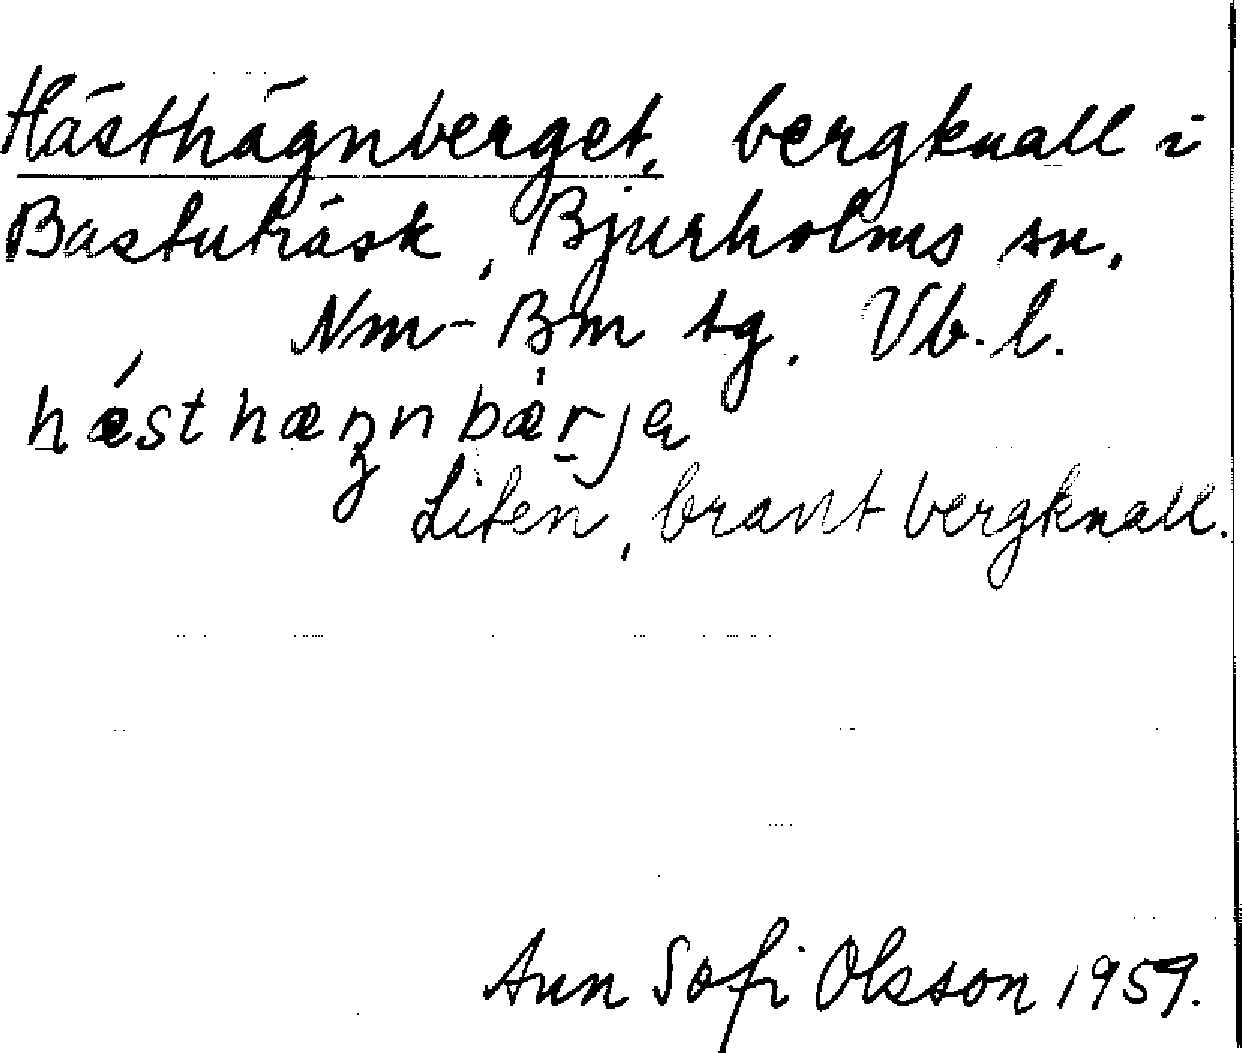 Hästhägnberget, bergknall i
Bastuträsk, Bjurholms sn.
Nm-Bm tg. Vb.l.
hæsthæŋnbærja
Liten, brant bergknall.
Ann Sofi Olsson 1959.